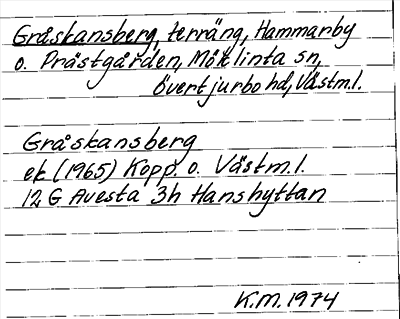 Gråskansberg, terräng, Hammarby
o. Prästgården, Möklinta sn,
Övertjurbo hd, Västm.l.
Gråskansberg
ek (1965) Kopp. o. Västm.l.
12 G Avesta 3h Hanshyttan
K.M. 1974